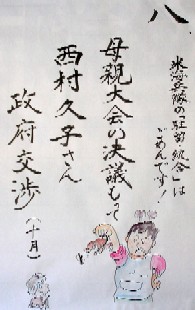 八、
米海兵隊の は
ごめんです!
母親大会の決議もって
西村久子さん
政府交渉
(十月)